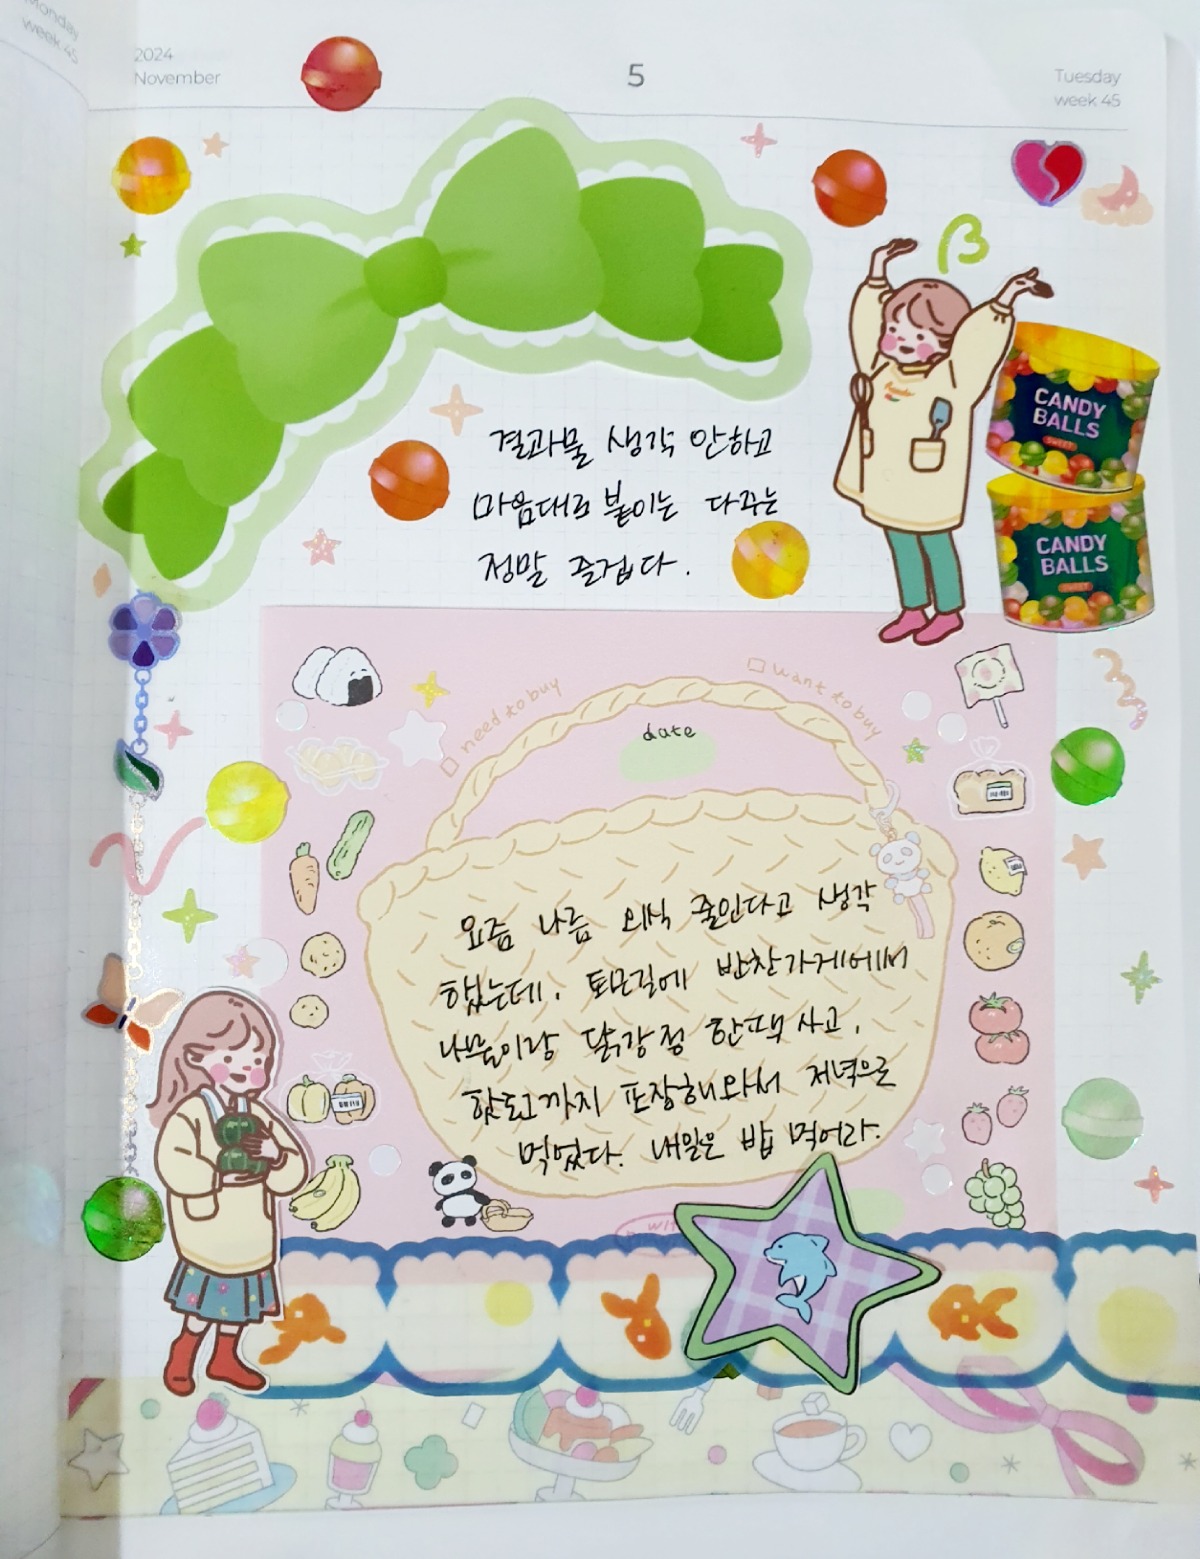 Monday
week 45
2024
November
5
Tuesday
week 45
β
결과물 생각 안하고
마음대로 붙이는 다꾸는
정말 즐겁다.
CANDY
BALLS
SWEET
CANDY
BALLS
SWEET
□ need to buy
□ want to buy
date
요즘 나름 외식 줄인다고 생각
했는데, 퇴근길에 반찬가게에서
나물이랑 닭강정 한팩 사고,
핫도그까지 포장해와서 저녁으로
먹었다. 내일은 밥 먹어라.